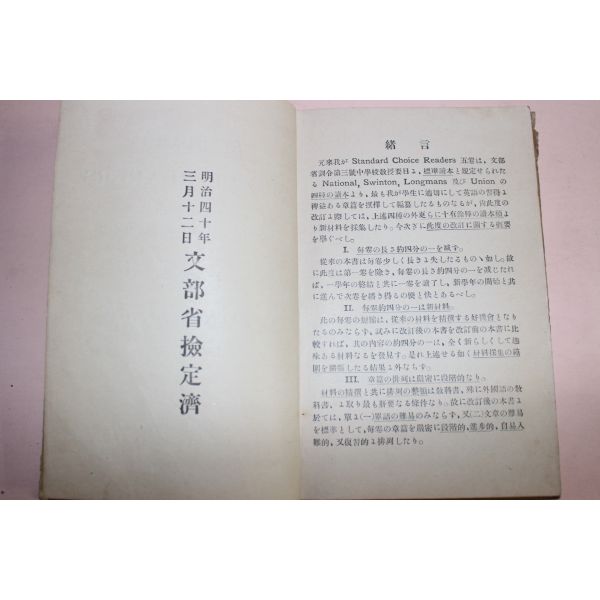 明治四十年
三月十二日
文部省檢定濟
緒言
元來我が Standard Choice Readers 五卷は、文部
省訓令第三號中學校敎授要目よ、標準讀本と規定せられた
る National, Swinton, Longmans 及び Union の
四種の讀本より、最も我が學生に適切にして英語の習得よ
裨益ある章篇を撰擇して編纂したるものなるが、尙此度の
改訂よ際しては、上述四種の外更らに十有餘種の讀本類よ
り新材料を採集したり。今次ぎに此度の改訂に關する綱要
を擧ぐべし。
I. 每卷の長さ約四分の一を減ず。
從來の本書は每卷少しく長さよ失したるものゝ如し。故
に此度は第一卷を除き、每卷の長さ約四分の一を減じたれ
ば、一學年の終結と共に一卷を讀了し、新學年の開始と共
に進んで次卷を繙き得るの便と快とあるべし。
II. 每卷約四分の一は新材料。
此の每卷の短縮は、從來の材料を精撰する好機會となり
たるのみならず、試みに改訂後の本書を改訂前の本書に比
較すれば、其の內容の約四分の一は、全く新らしくして趣
味ある材料なるを發見す。是れ上述せる如く材料採集の範
圍を擴張したる結果よ外ならず。
III. 章篇の排列は嚴密に段階的なり。
材料の精撰と共に排列の整備は敎科書、殊に外國語の敎
科書、よ取り最も肝要なる條件なり。故に改訂後の本書よ
於ては、單よ(一)單語の難易のみならず、又(二)文章の難易
を標準として、每卷の章篇を嚴密に段階的、進步的、自易入
難的、又復習的よ排列したり。